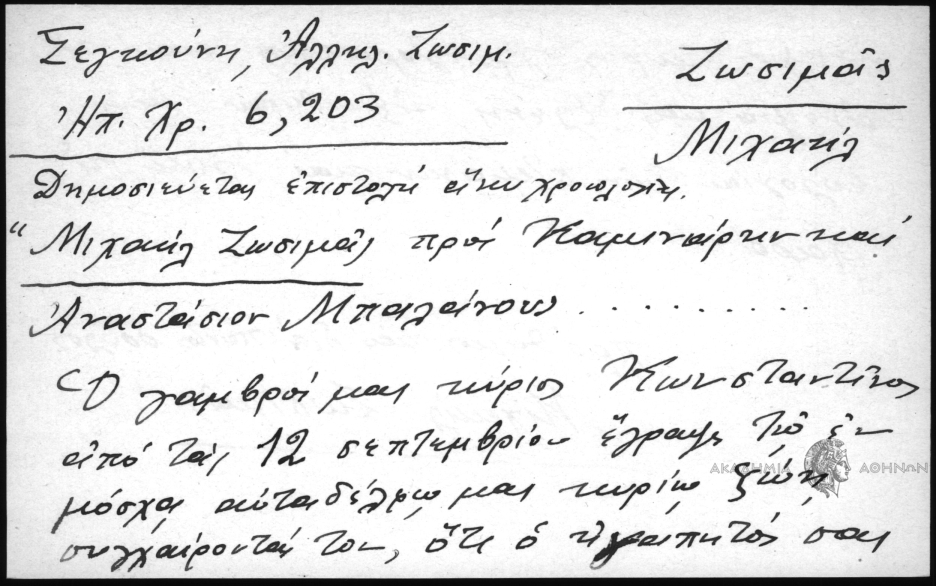 Σεγκούνη, Ἀλληλ. Ζωσιμ.
Ζωσιμᾶς
Ἠπ. Χρ. 6, 203
Μιχαήλ
Δημοσιεύεται ἐπιστολὴ ἄνευ χρονολογίας.
"Μιχαὴλ Ζωσιμᾶς πρὸς Καμινάρην καὶ
Ἀναστάσιον Μπαλάνους ..........
Ὁ γαμβρός μας κύριος Κωνσταντῖνος
ἀπὸ τὰς 12 σεπτεμβρίου ἔγραψε τῷ ἐν
μόσχᾳ αὐταδέλφῳ μας κυρίῳ ζώη,
συγχαίροντάς τον, ὅτι ὁ ἠγαπητός σας
ΑΚΑΔΗΜΙΑ ΑΘΗΝΩΝ